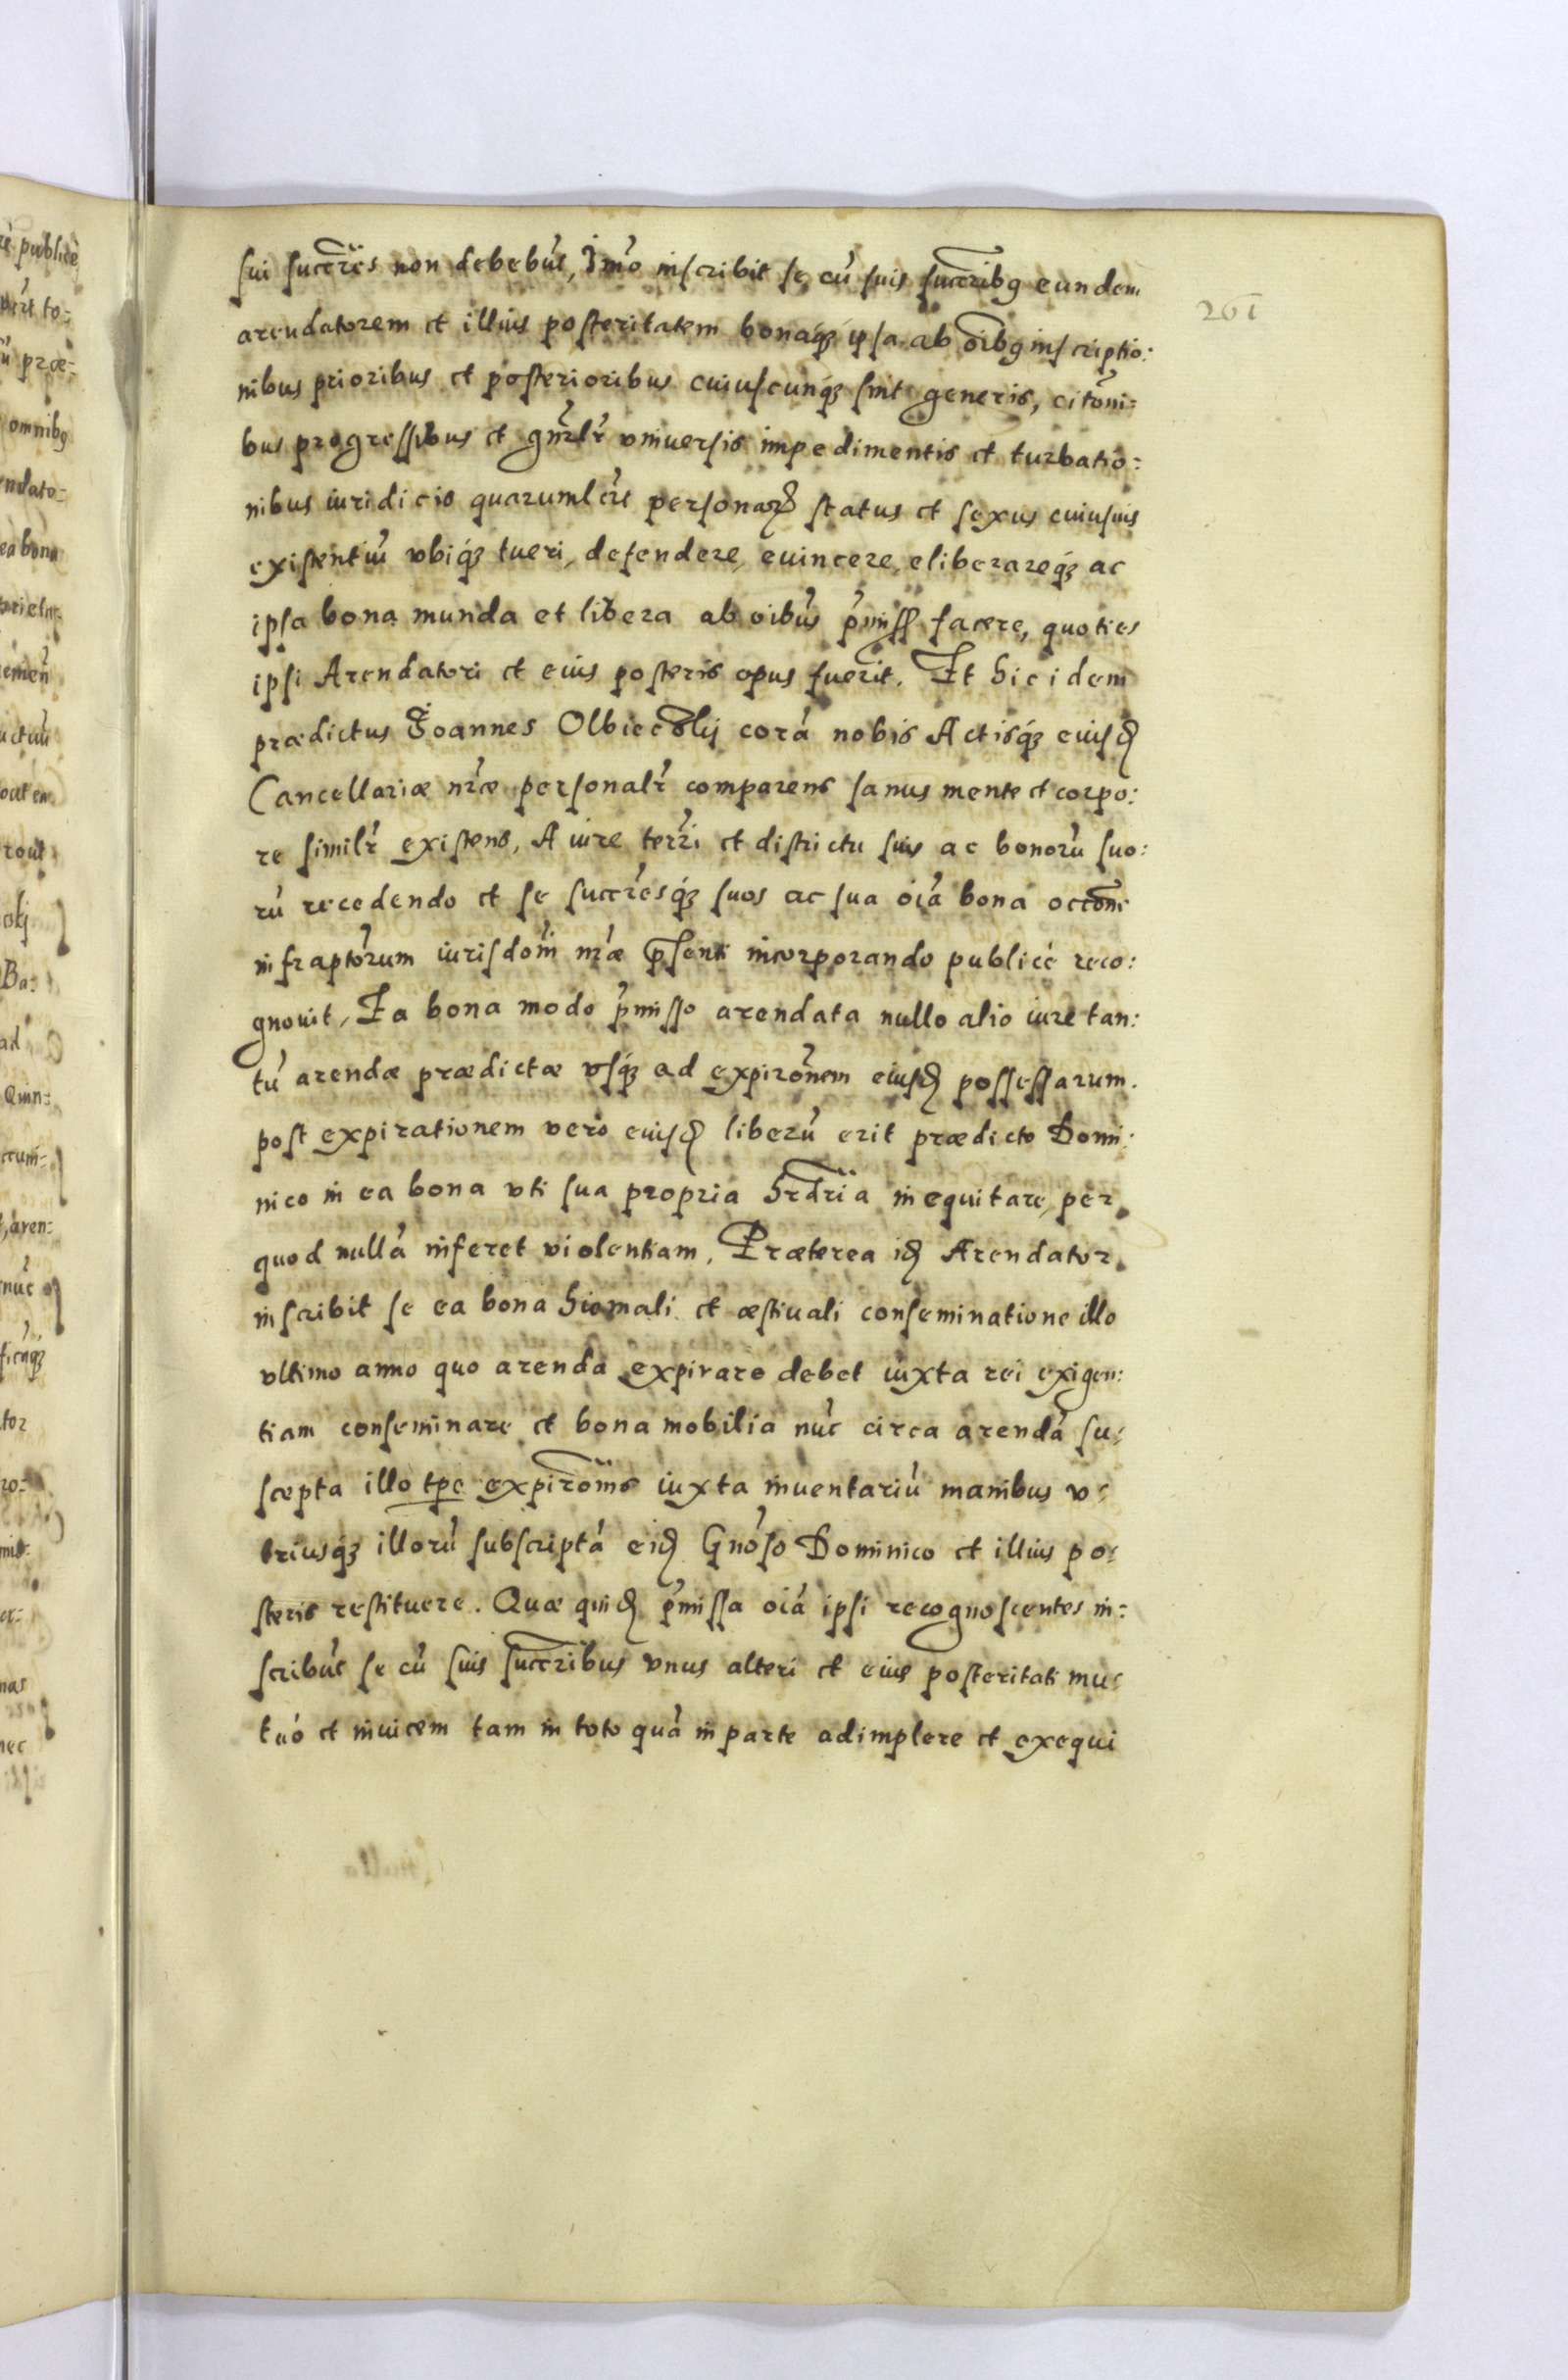 261
sui succr̃es non debebūt, Imo inscribit se cū suis succribꝫ eundem
arendatorem et illius posteritatem bonaqꝫ ipsa ab oībꝫ inscriptio:
nibus prioribus et posterioribus cuiuscunqꝫ sint generis, citōni:
bus progressibus et gnr̃lr̃ vniuersis impedimentis et turbatio:
nibus iuridicis quarumlet personaꝝ status et sexus cuiusuis
existentiū vbiqꝫ tueri, defendere, euincere, eliberareqꝫ ac
ipsa bona munda et libera ab oibus p̃miss facere, quoties
ipsi Arendatori et eius posteris opus fuerit. Et hic idem
prædictus Joannes Olbiec
corā nobis Actisqꝫ eiusd
Cancellariæ nr̃æ personalr̃ comparens sanus mente et corpo:
re similr̃ existens, A iure terri et districtu suis ac bonorū suo:
rū recedendo et se succr̃esqꝫ suos ac sua oīa bona occōne
infraptorum iurisdoīn nr̃æ p̃senti incorporando publicè reco:
gnouit, Ea bona modo p̃misso arendata nullo alio iure tan:
tū arendæ prædictæ vsqꝫ ad expirōnem eiusd possessarum.
post expirationem vero eiusd liberū erit prædicto Domi:
nico in ea bona vti sua propria hrdria inequitare, per
quod nullā inferet violentiam. Præterea id Arendator
inscribit se ea bona hiemali et æstiuali conseminatione illo
vltimo anno quo arenda expirare debet iuxta rei exigen:
tiam conseminare et bona mobilia nūc circa arendā su:
scepta illo tp̃e expirōnis iuxta inuentariū manibus v:
triusqꝫ illorū subscriptā eid Gnōso Dominico et illius po:
steris restituere. Quæ quid p̃missa oīa ipsi recognoscentes in:
scribūt se cū suis succribus vnus alteri et eius posteritati mu:
tuó et inuicem tam in toto quā in parte adimplere et exequi